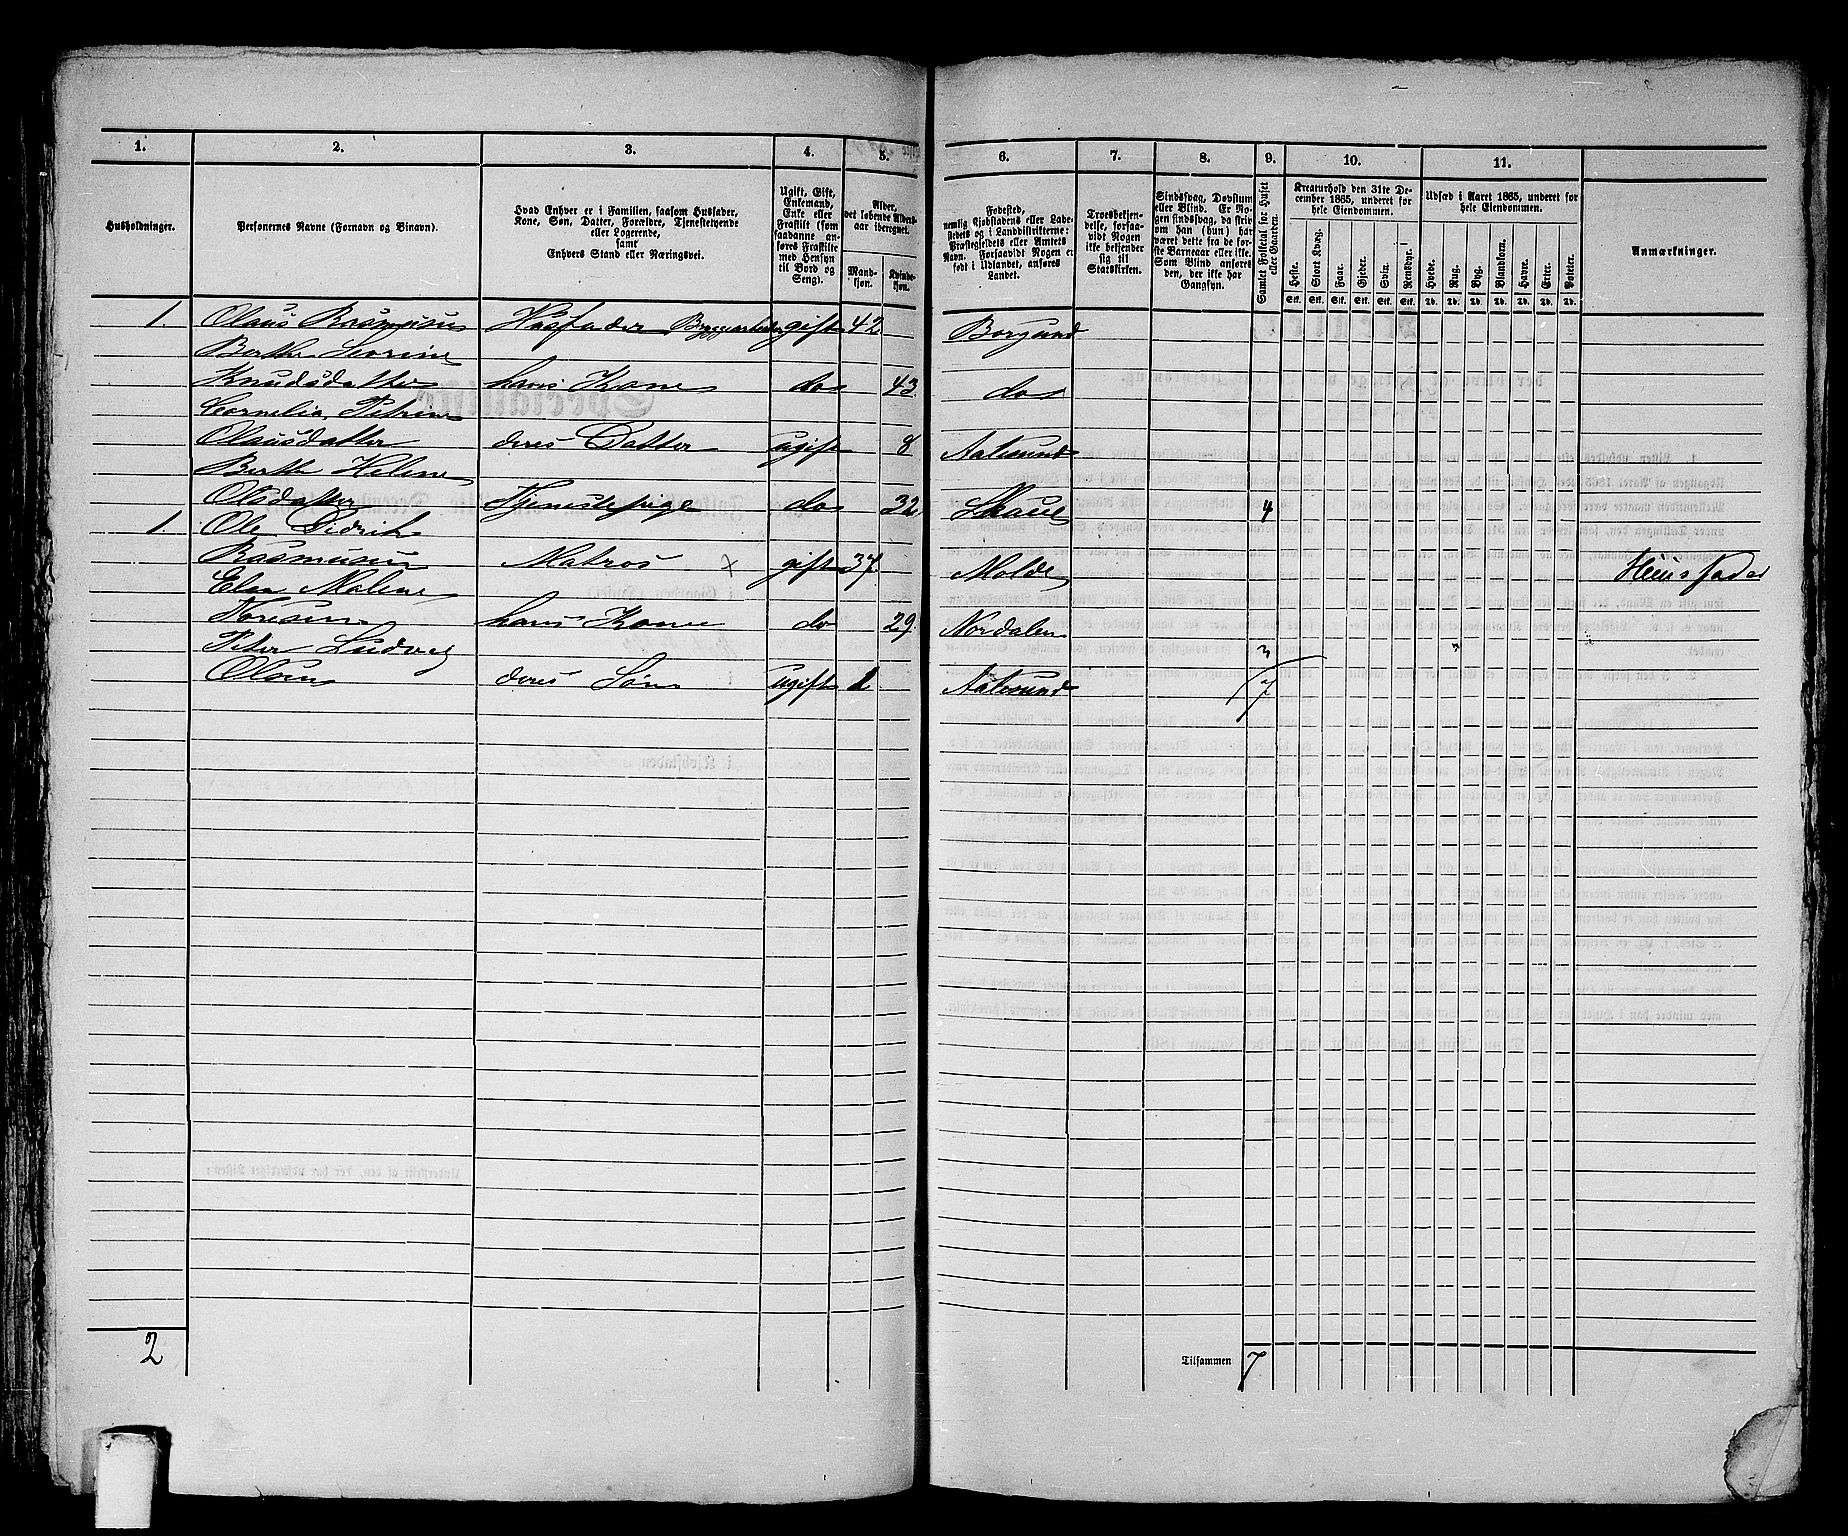 1. 2. 3. 4. 5. 6. 7. 8. 9. 10. 11.
Husholdninger.
Personernes Navne (Fornavn og Binavn).
Hvad Enhver er i Familien, saasom Husfader,
Kone, Søn, Datter, Forældre, Tjenestetyende
eller Logerende,
samt
Enhvers Stand eller Næringsvei.
Ugift, Gift,
Enkemand,
Enke eller
Fraskilt (som
saadanne an-
føres Fraskilte
med Hensyn
til Bord og
Seng).
Alder,
det løbende Alders-
aar iberegnet.
Mand-
kjøn.
Kvinde-
kjøn.
Fødested,
nemlig Kjøbstadens eller Lade-
stedets og i Landdistrikterne:
Præstegjeldets eller Amtets
Navn. Forsaavidt Nogen er
født i Udlandet, anføres
Landet.
Troesbekjen-
delse, forsaa-
vidt Nogen
ikke bekjender
sig til
Statskirken.
Sindssvag, Døvstum
eller Blind. Er No-
gen sindssvag, da skriv
om han (hun) har
været dette fra de før-
ste Barneaar eller ikke.
Som Blind anføres
den, der ikke har
Gangsyn.
Samlet Folketal for Huset
eller Gaarden.
Kreaturhold den 31te De-
cember 1865, underet for
hele Eiendommen.
Heste. Stort Kvæg. Faar. Gjeder. Svin. Rensdyr.
Stk. Stk. Stk. Stk. Stk. Stk.
Udsæd i Aaret 1865, underet for
hele Eiendommen.
Hvede. Rug. Byg. Blandkorn. Havre. Erter. Poteter.
Td. Td. Td. Td. Td. Td. Td.
Anmærkninger.
1. Olaus Rasmusen Husfader gift 42 Borgund
Berthe Sevrine
Knudsdatter hans Kone do 43 do
Cornelia Petrine
Olausdatter deres Datter ugift 8 Aalesund
Berthe Helene
Olsdatter Tjenestepige do 32 Skaue 4
1. Ole Didrik
Rasmusen Matros x gift 37 Molde Huusfader
Elen Malene
hans Kone do 29 Nordalen
Peter Ludvig 3
Olsen deres Søn ugift 1 Aalesund 7
2 Tilsammen 7